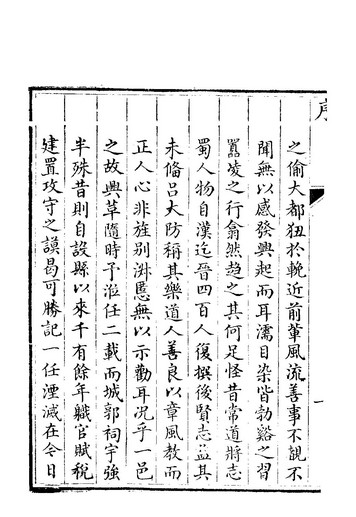 序
之偷大都狃於輓近前軰風流善事不覩不
聞無以感發興起而耳濡目染皆勃谿之習
囂凌之行翕然趋之其何足怪昔常道將志
蜀人物自漢迄晉四百人復撰後賢志益其
未備吕大防稱其樂道人善良以章風教而
正人心非旌别淑慝無以示勸耳况乎一邑
之故興革隨時予涖任二載而城郭祠宇強
半殊昔則自設縣以來千有餘年職官賦稅
建置攻守之謨曷可勝記一任湮滅在今日
一